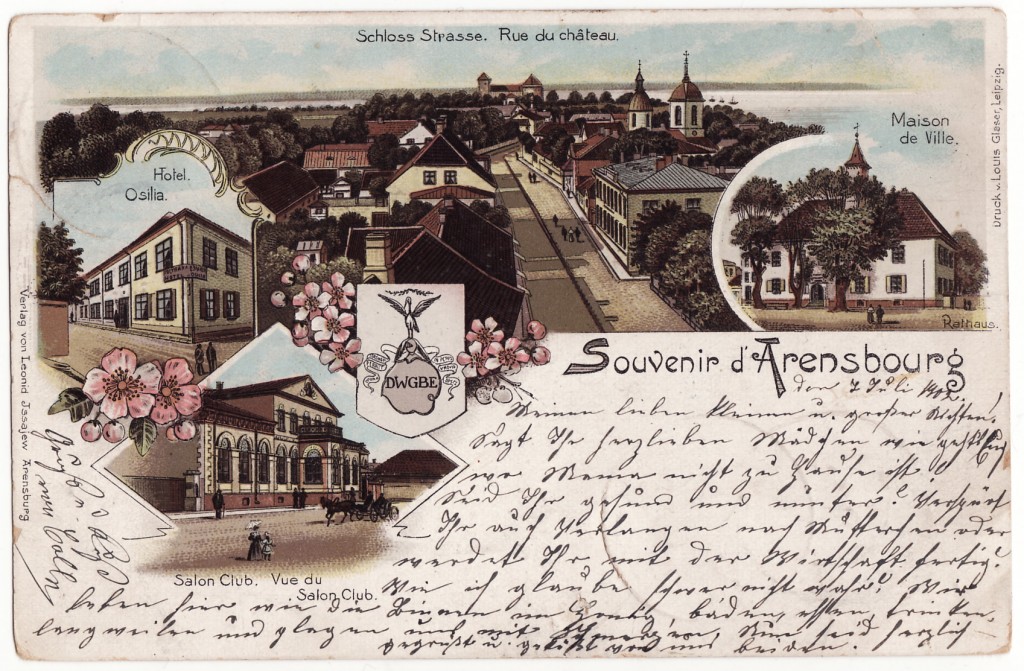 Schloss Strasse. Rue du château.
Maison
de Ville.
Druck v. Louis Glaser, Leipzig.
Hotel
Osilia.
Rathaus.
DWGBE
Souvenir d'Arensbourg
Verlag von Leonid Jasajew Arensburg
Salon Club. Vue du
Salon Club.
den 7 Juli
Meinen lieben kleinen u. großen Nichten.
Sagt Ihr herzlieben Mädchen wie geht's Euch
wo Mama nicht zu Hause ist?
Seid Ihr gesund und munter? Verspürt
Ihr auch Verlangen nach Mütterchen oder
werdet Ihr mit der Wirtschaft fertig?
Wie ich glaube schwer nicht wahr? Wir
leben hier wie die Bienen im Honig, baden, essen, trinken,
langweilen und plagen uns mit Schmerzen. Nun seid herzlich
gegrüßt u. geküßt von uns beiden.